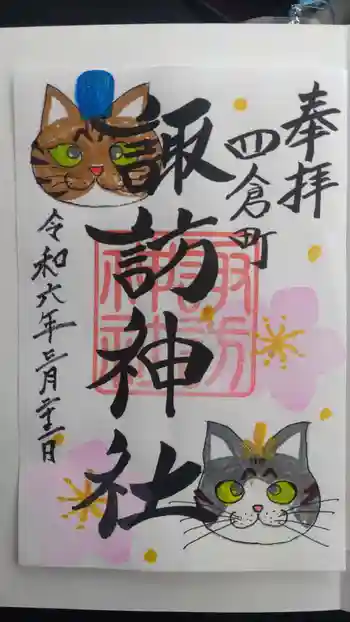 奉拝
四倉町
諏訪神社
令和六年三月二十二日
諏訪神社